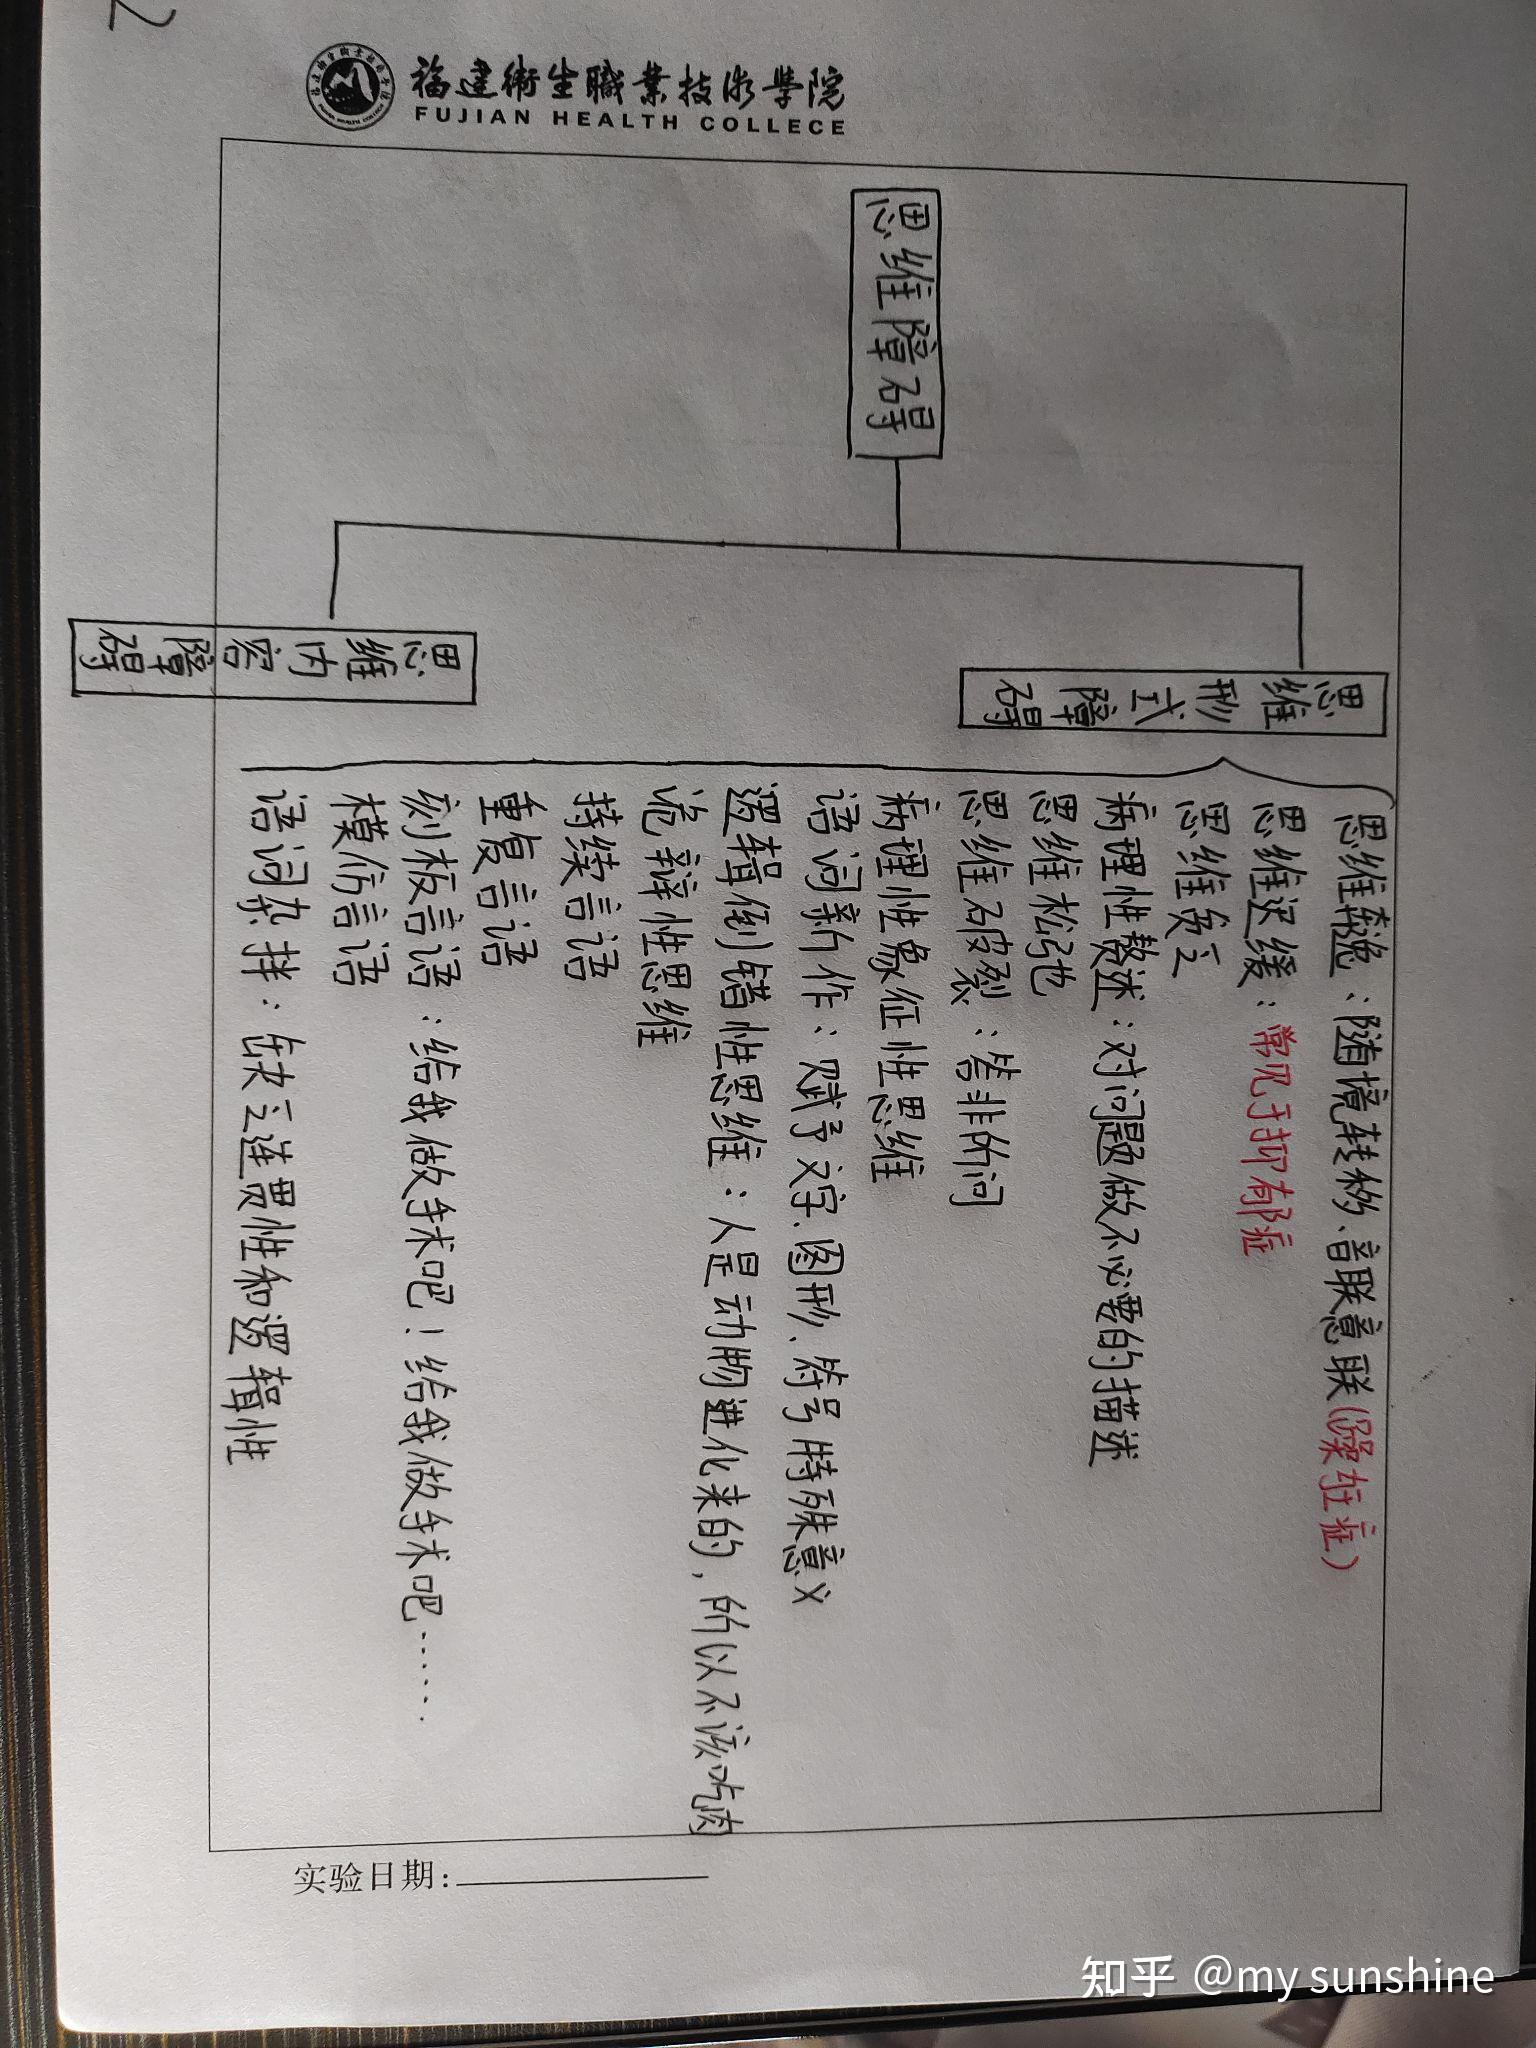 2
福建衛生職業技術學院
FUJIAN HEALTH COLLECE
思维障碍
思维形式障碍
思维奔逸：随境转移、音联意联(躁狂症)
思维迟缓：常见于抑郁症
思维贫乏
病理性赘述：对问题做不必要的描述
思维松弛
思维破裂：答非所问
病理性象征性思维
语词新作：赋予文字、图形、符号特殊意义
逻辑倒错性思维：人是动物进化来的，所以不该吃肉
诡辩性思维
持续言语
重复言语
刻板言语：给我做手术吧！给我做手术吧……
模仿言语
语词杂拌：缺乏连贯性和逻辑性
思维内容障碍
实验日期：
知乎 @my sunshine